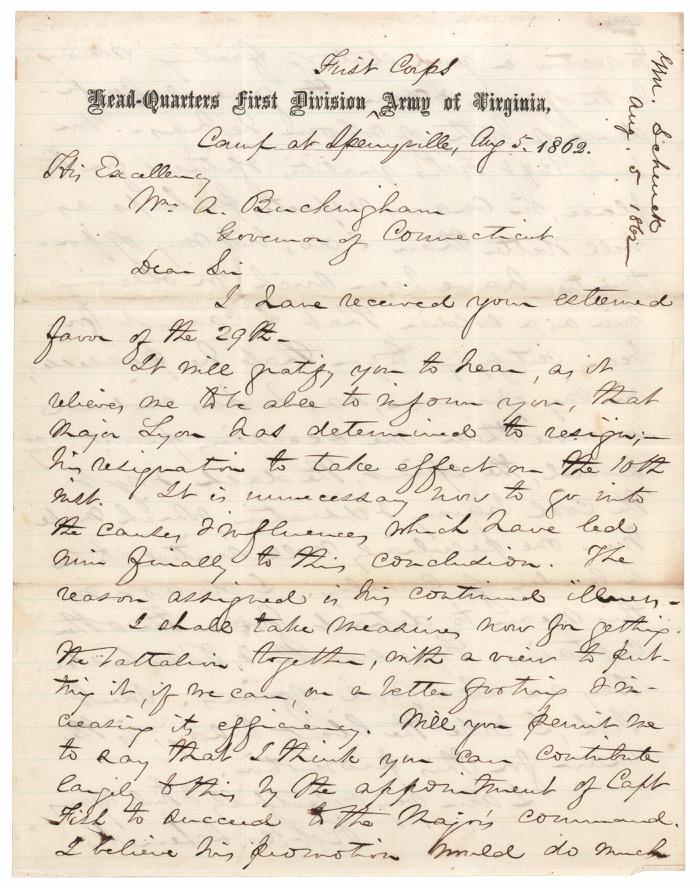 First Corps
Head-Quarters First Division Army of Virginia,
Camp at Sperryville, Aug 5. 1862.
His Excellency
Wm A. Buckingham
Governor of Connecticut
Dear Sir
I have received your esteemed
favor of the 29th–
It will gratify you to hear, as it
relieves me to be able to inform you, that
Major Lyon has determined to resign;–
his resignation to take effect on the 10th
inst. It is unnecessary now to go into
the causes & influences which have led
him finally to this conclusion. The
reason assigned is his continued illness–
I shall take measures now for getting
the battalion together, with a view to put-
ting it, if we can, on a better footing & in-
creasing its efficiency. Will you permit me
to say that I think you can contribute
largely to this by the appointment of Capt
Fish to succeed to the Major's command.
I believe his promotion would do much
Gen. Schenck
Aug. 5 1862